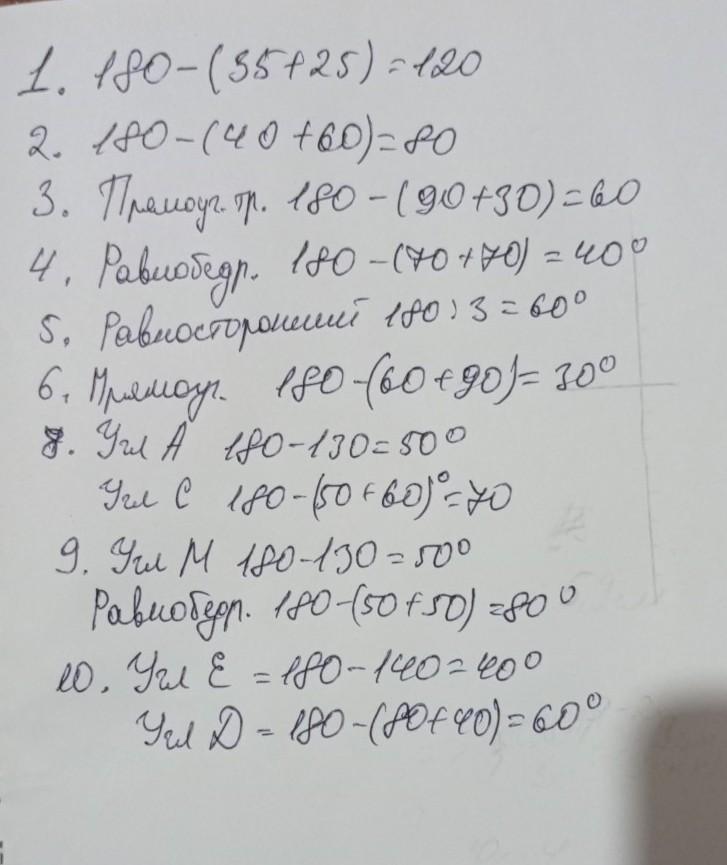 1. 180-(35+25)=120
2. 180-(40+60)=80
3. Прямоуг. тр. 180-(90+30)=60
4. Равнобедр. 180-(70+70)=40°
5. Равносторонний 180:3=60°
6. Прямоуг. 180-(60+90)=30°
8. Угл А 180-130=50°
Угл С 180-(50+60)°=70
9. Угл М 180-130=50°
Равнобедр. 180-(50+50)=80°
10. Угл Е =180-140=40°
Угл D = 180-(80+40)=60°